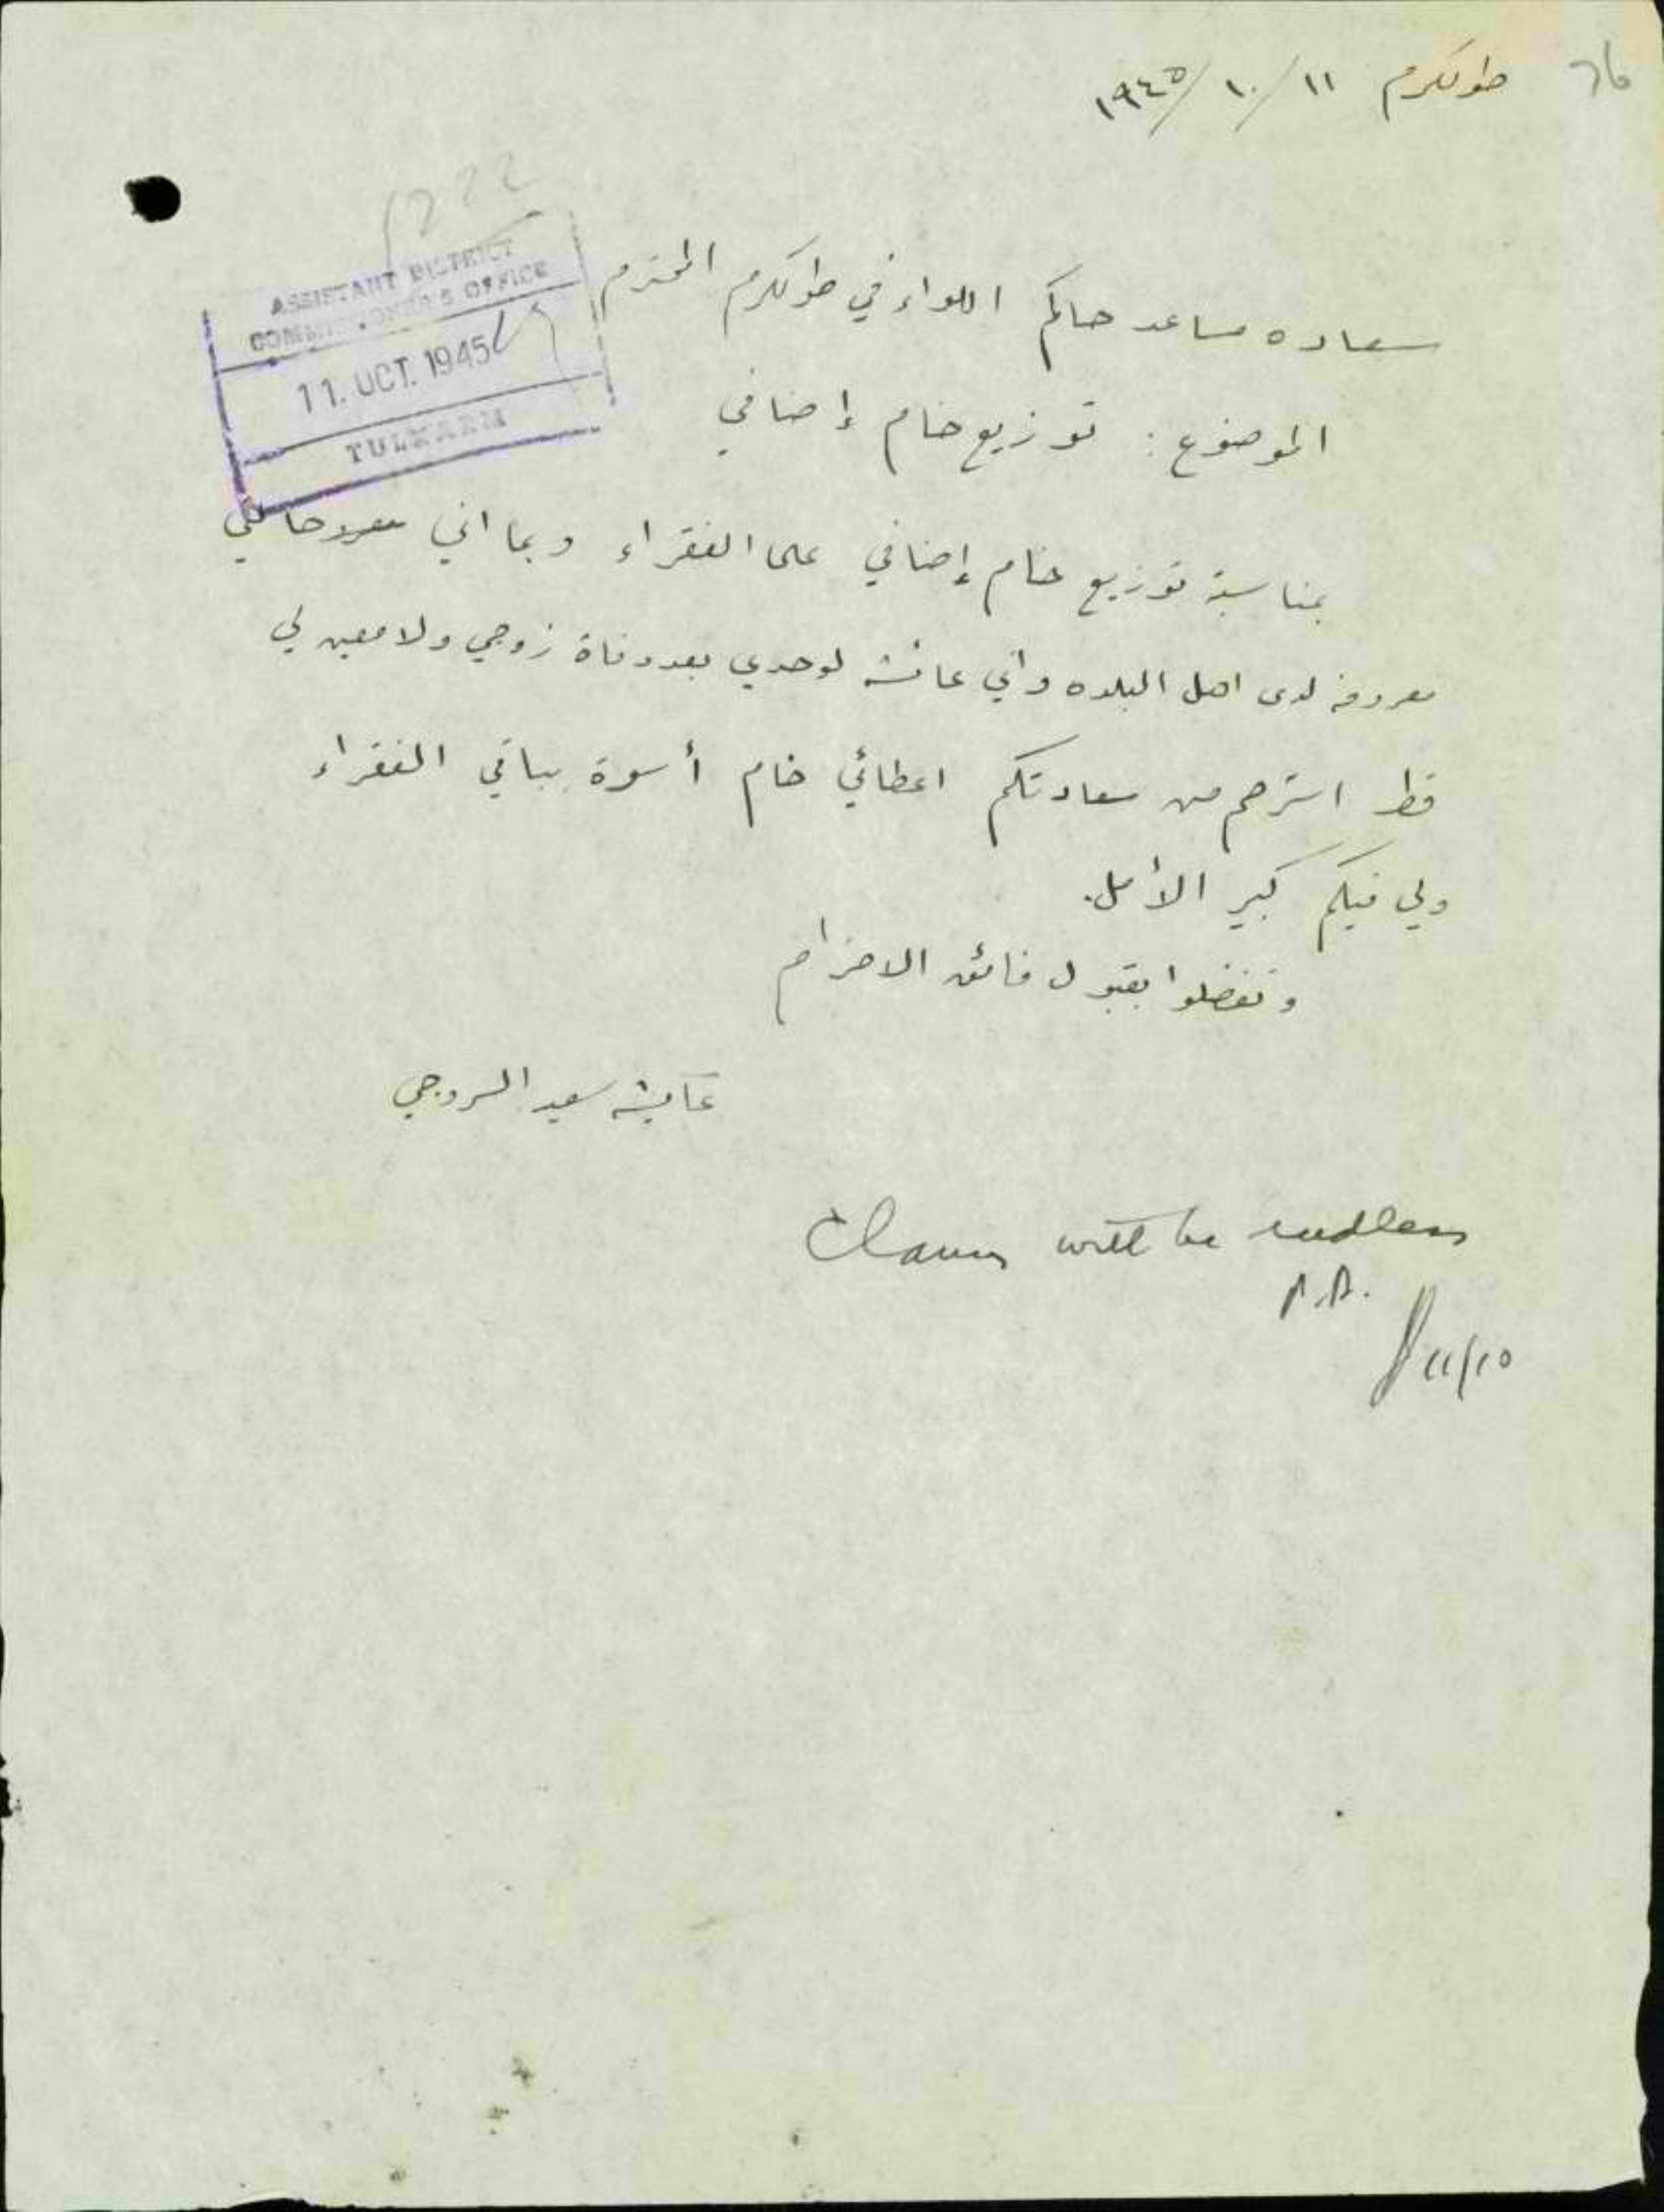 76
طولكرم ١١/١٠/١٩٤٥
ASSISTANT DISTRICT
COMMISSIONER'S OFFICE
11. OCT. 1945
TULKARM
سعاده مساعد حاكم اللواء في طولكرم المحترم
الموضوع : توزيع خام إضافي
بمناسبة توزيع خام إضافي على الفقراء وبما اني حالتي
معروفه لدى اهل البلده واني عائشه لوحدي بعد وفاة زوجي ولا معين لي
قط استرحم من سعادتكم اعطائي خام أسوة بباقي الفقراء
ولي فيكم كبير الأمل.
وتفضلوا بقبول فائق الاحترام
عايشه سعيد السروجي
Claims will be endless
P.A.
11/10